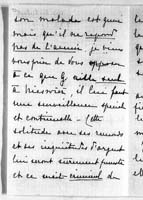 son malade est guéri
mais qu'il ne répond
pas de l'avenir je viens
vous prier de vous opposer
à ce que G veille seul
à il lui faut
une surveillance spéciale
et continuelle - Cette
solitude avec ses remords
et ses inquiétudes d'argent
lui seront sûrement funestes
et ce serait criminel de